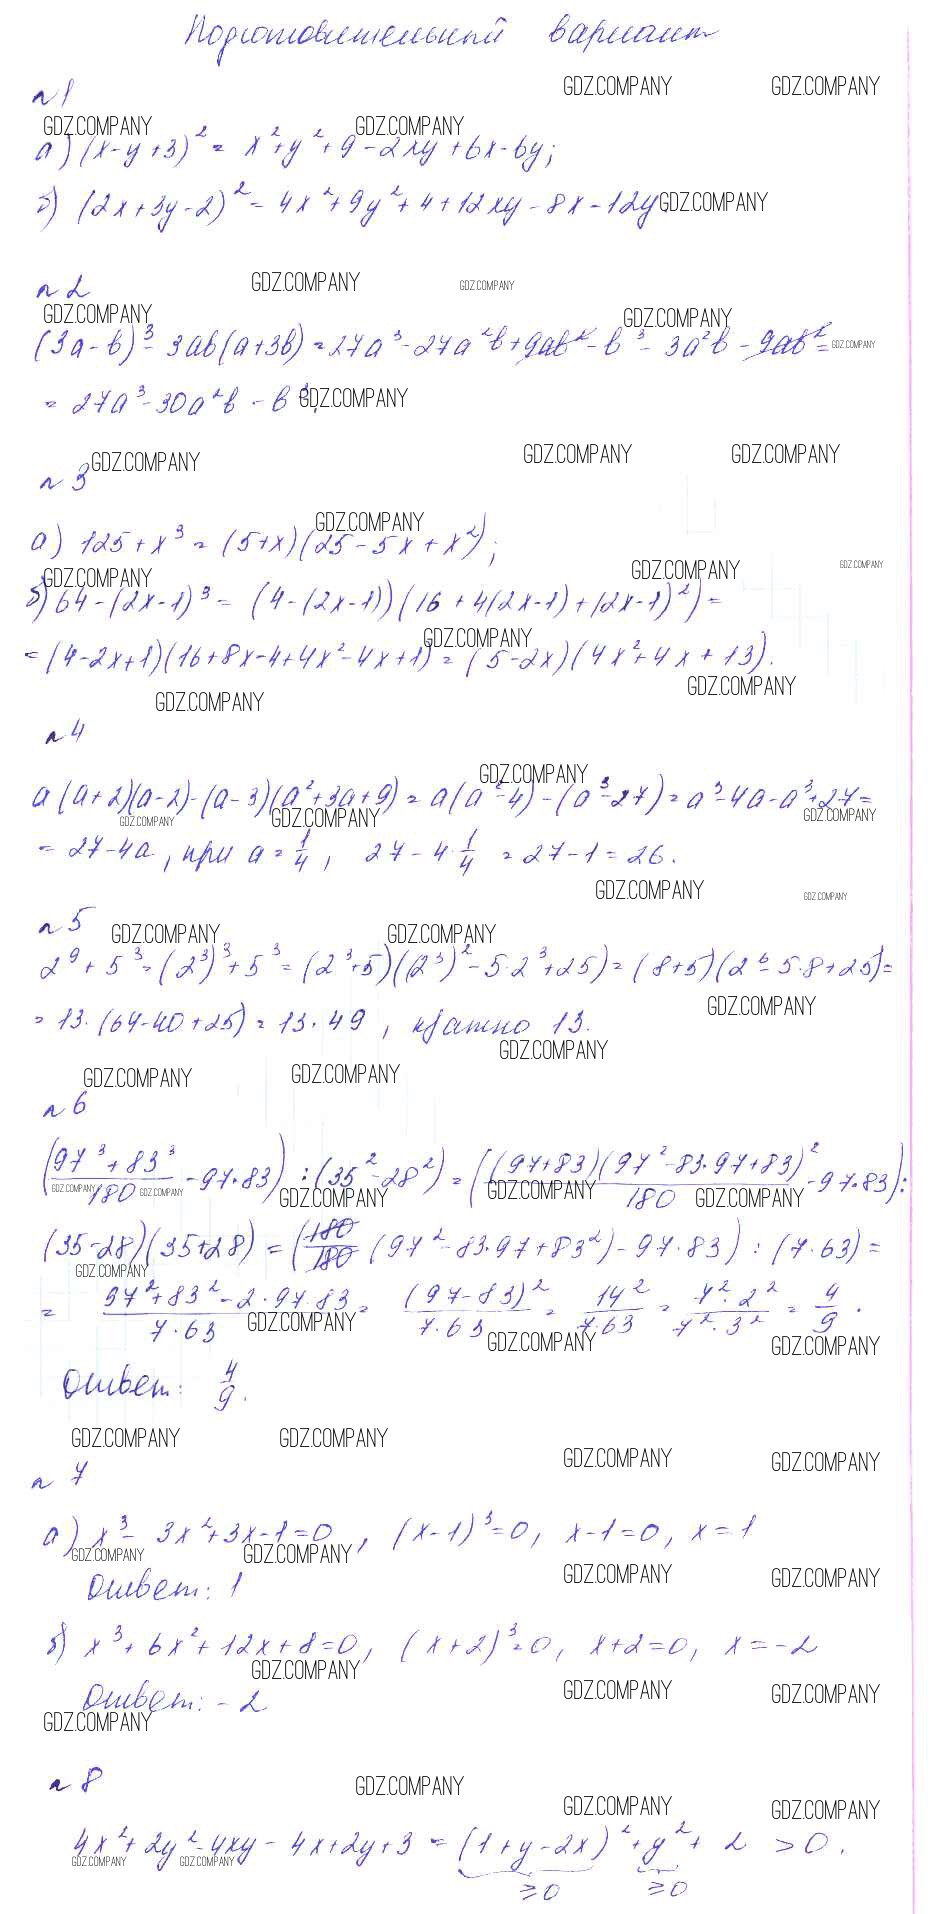 Подготовительный вариант
GDZ.COMPANY GDZ.COMPANY
№1
GDZ.COMPANY GDZ.COMPANY
а) (x-y+3)² = x²+y²+9-2xy+6x-6y;
б) (2x+3y-2)² = 4x²+9y²+4+12xy-8x-12y GDZ.COMPANY
GDZ.COMPANY GDZ.COMPANY
№2
GDZ.COMPANY GDZ.COMPANY
(3a-b)³-3ab(a+3b)=27a³-27a²b+9ab²-b³-3a²b-9ab²= GDZ.COMPANY
= 27a³-30a²b-b³. GDZ.COMPANY
GDZ.COMPANY GDZ.COMPANY GDZ.COMPANY
№3
GDZ.COMPANY
а) 125+x³ = (5+x)(25-5x+x²);
GDZ.COMPANY GDZ.COMPANY GDZ.COMPANY
б) 64-(2x-1)³ = (4-(2x-1))(16+4(2x-1)+(2x-1)²) =
GDZ.COMPANY
= (4-2x+1)(16+8x-4+4x²-4x+1) = (5-2x)(4x²+4x+13).
GDZ.COMPANY GDZ.COMPANY
№4
GDZ.COMPANY
a(a+2)(a-2)-(a-3)(a²+3a+9) = a(a²-4)-(a³-27) = a³-4a-a³+27=
GDZ.COMPANY GDZ.COMPANY GDZ.COMPANY
= 27-4a, при a=1/4, 27-4·1/4 = 27-1 = 26.
GDZ.COMPANY GDZ.COMPANY
№5
GDZ.COMPANY GDZ.COMPANY
2⁹+5³=(2³)³+5³=(2³+5)((2³)²-5·2³+25)=(8+5)(2⁶-5·8+25)=
= 13·(64-40+25) = 13·49, кратно 13. GDZ.COMPANY
GDZ.COMPANY
GDZ.COMPANY GDZ.COMPANY
№6
((97³+83³)/180 - 97·83) : (35²-28²) = (((97+83)(97²-83·97+83)²)/180 - 97·83) :
GDZ.COMPANY GDZ.COMPANY GDZ.COMPANY GDZ.COMPANY GDZ.COMPANY
(35-28)(35+28) = (180/180 (97²-83·97+83²)-97·83) : (7·63) =
GDZ.COMPANY
= (97²+83²-2·97·83)/(7·63) = (97-83)²/(7·63) = 14²/(7·63) = (7²·2²)/(7²·3²) = 4/9.
GDZ.COMPANY GDZ.COMPANY GDZ.COMPANY
Ответ: 4/9.
GDZ.COMPANY GDZ.COMPANY GDZ.COMPANY GDZ.COMPANY
№7
а) x³-3x²+3x-1=0, (x-1)³=0, x-1=0, x=1
GDZ.COMPANY GDZ.COMPANY GDZ.COMPANY GDZ.COMPANY
Ответ: 1
б) x³+6x²+12x+8=0, (x+2)³=0, x+2=0, x=-2
GDZ.COMPANY GDZ.COMPANY GDZ.COMPANY
Ответ: -2
GDZ.COMPANY
№8
GDZ.COMPANY GDZ.COMPANY GDZ.COMPANY
4x²+2y²-4xy-4x+2y+3 = (1+y-2x)²+y²+2 >0.
GDZ.COMPANY GDZ.COMPANY
≥0 ≥0